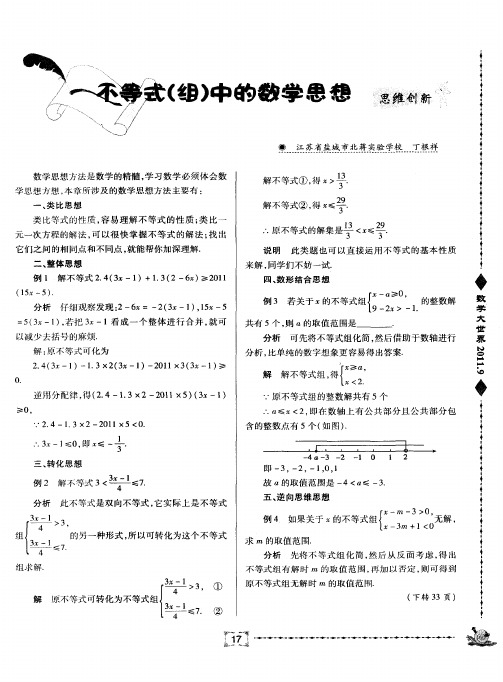 不等式(组)中的数学思想
思维创新
◉ 江苏省盐城市北蒋实验学校 丁根祥
数学思想方法是数学的精髓,学习数学必须体会数
学思想方想.本章所涉及的数学思想方法主要有:
一、类比思想
类比等式的性质,容易理解不等式的性质;类比一
元一次方程的解法,可以很快掌握不等式的解法;找出
它们之间的相同点和不同点,就能帮你加深理解.
二、整体思想
例1 解不等式2.4(3x-1)+1.3(2-6x)≥2011
(15x-5).
分析 仔细观察发现:2-6x=-2(3x-1),15x-5
=5(3x-1),若把3x-1看成一个整体进行合并,就可
以减少去括号的麻烦.
解:原不等式可化为
2.4(3x-1)-1.3×2(3x-1)-2011×3(3x-1)≥
0.
逆用分配律,得(2.4-1.3×2-2011×5)(3x-1)
≥0,
∵2.4-1.3×2-2011×5<0.
∴3x-1≤0,即x≤-1/3.
三、转化思想
例2 解不等式3<(3x-1)/4≤7.
分析 此不等式是双向不等式,它实际上是不等式
组{(3x-1)/4>3, (3x-1)/4≤7. 的另一种形式,所以可转化为这个不等式
组求解.
解 原不等式可转化为不等式组{(3x-1)/4>3, ① (3x-1)/4≤7. ②
解不等式①,得x>13/3.
解不等式②,得x≤29/3.
∴原不等式的解集是13/3<x≤29/3.
说明 此类题也可以直接运用不等式的基本性质
来解,同学们不妨一试.
四、数形结合思想
例3 若关于x的不等式组{x-a≥0, 9-2x>-1. 的整数解
共有5个,则a的取值范围是______.
分析 可先将不等式组化简,然后借助于数轴进行
分析,比单纯的数字想象更容易得出答案.
解 解不等式组,得{x≥a, x<2.
∵原不等式组的整数解共有5个
∴a≤x<2,即在数轴上有公共部分且公共部分包
含的整数点有5个(如图).
-4 a -3 -2 -1 0 1 2
即-3,-2,-1,0,1
故a的取值范围是-4<a≤-3.
五、逆向思维思想
例4 如果关于x的不等式组{x-m-3>0, x-3m+1<0 无解,
求m的取值范围.
分析 先将不等式组化简,然后从反面考虑,得出
不等式组有解时m的取值范围,再加以否定,则可得到
原不等式组无解时m的取值范围.
(下转33页)
数学大世界 2011.9
17